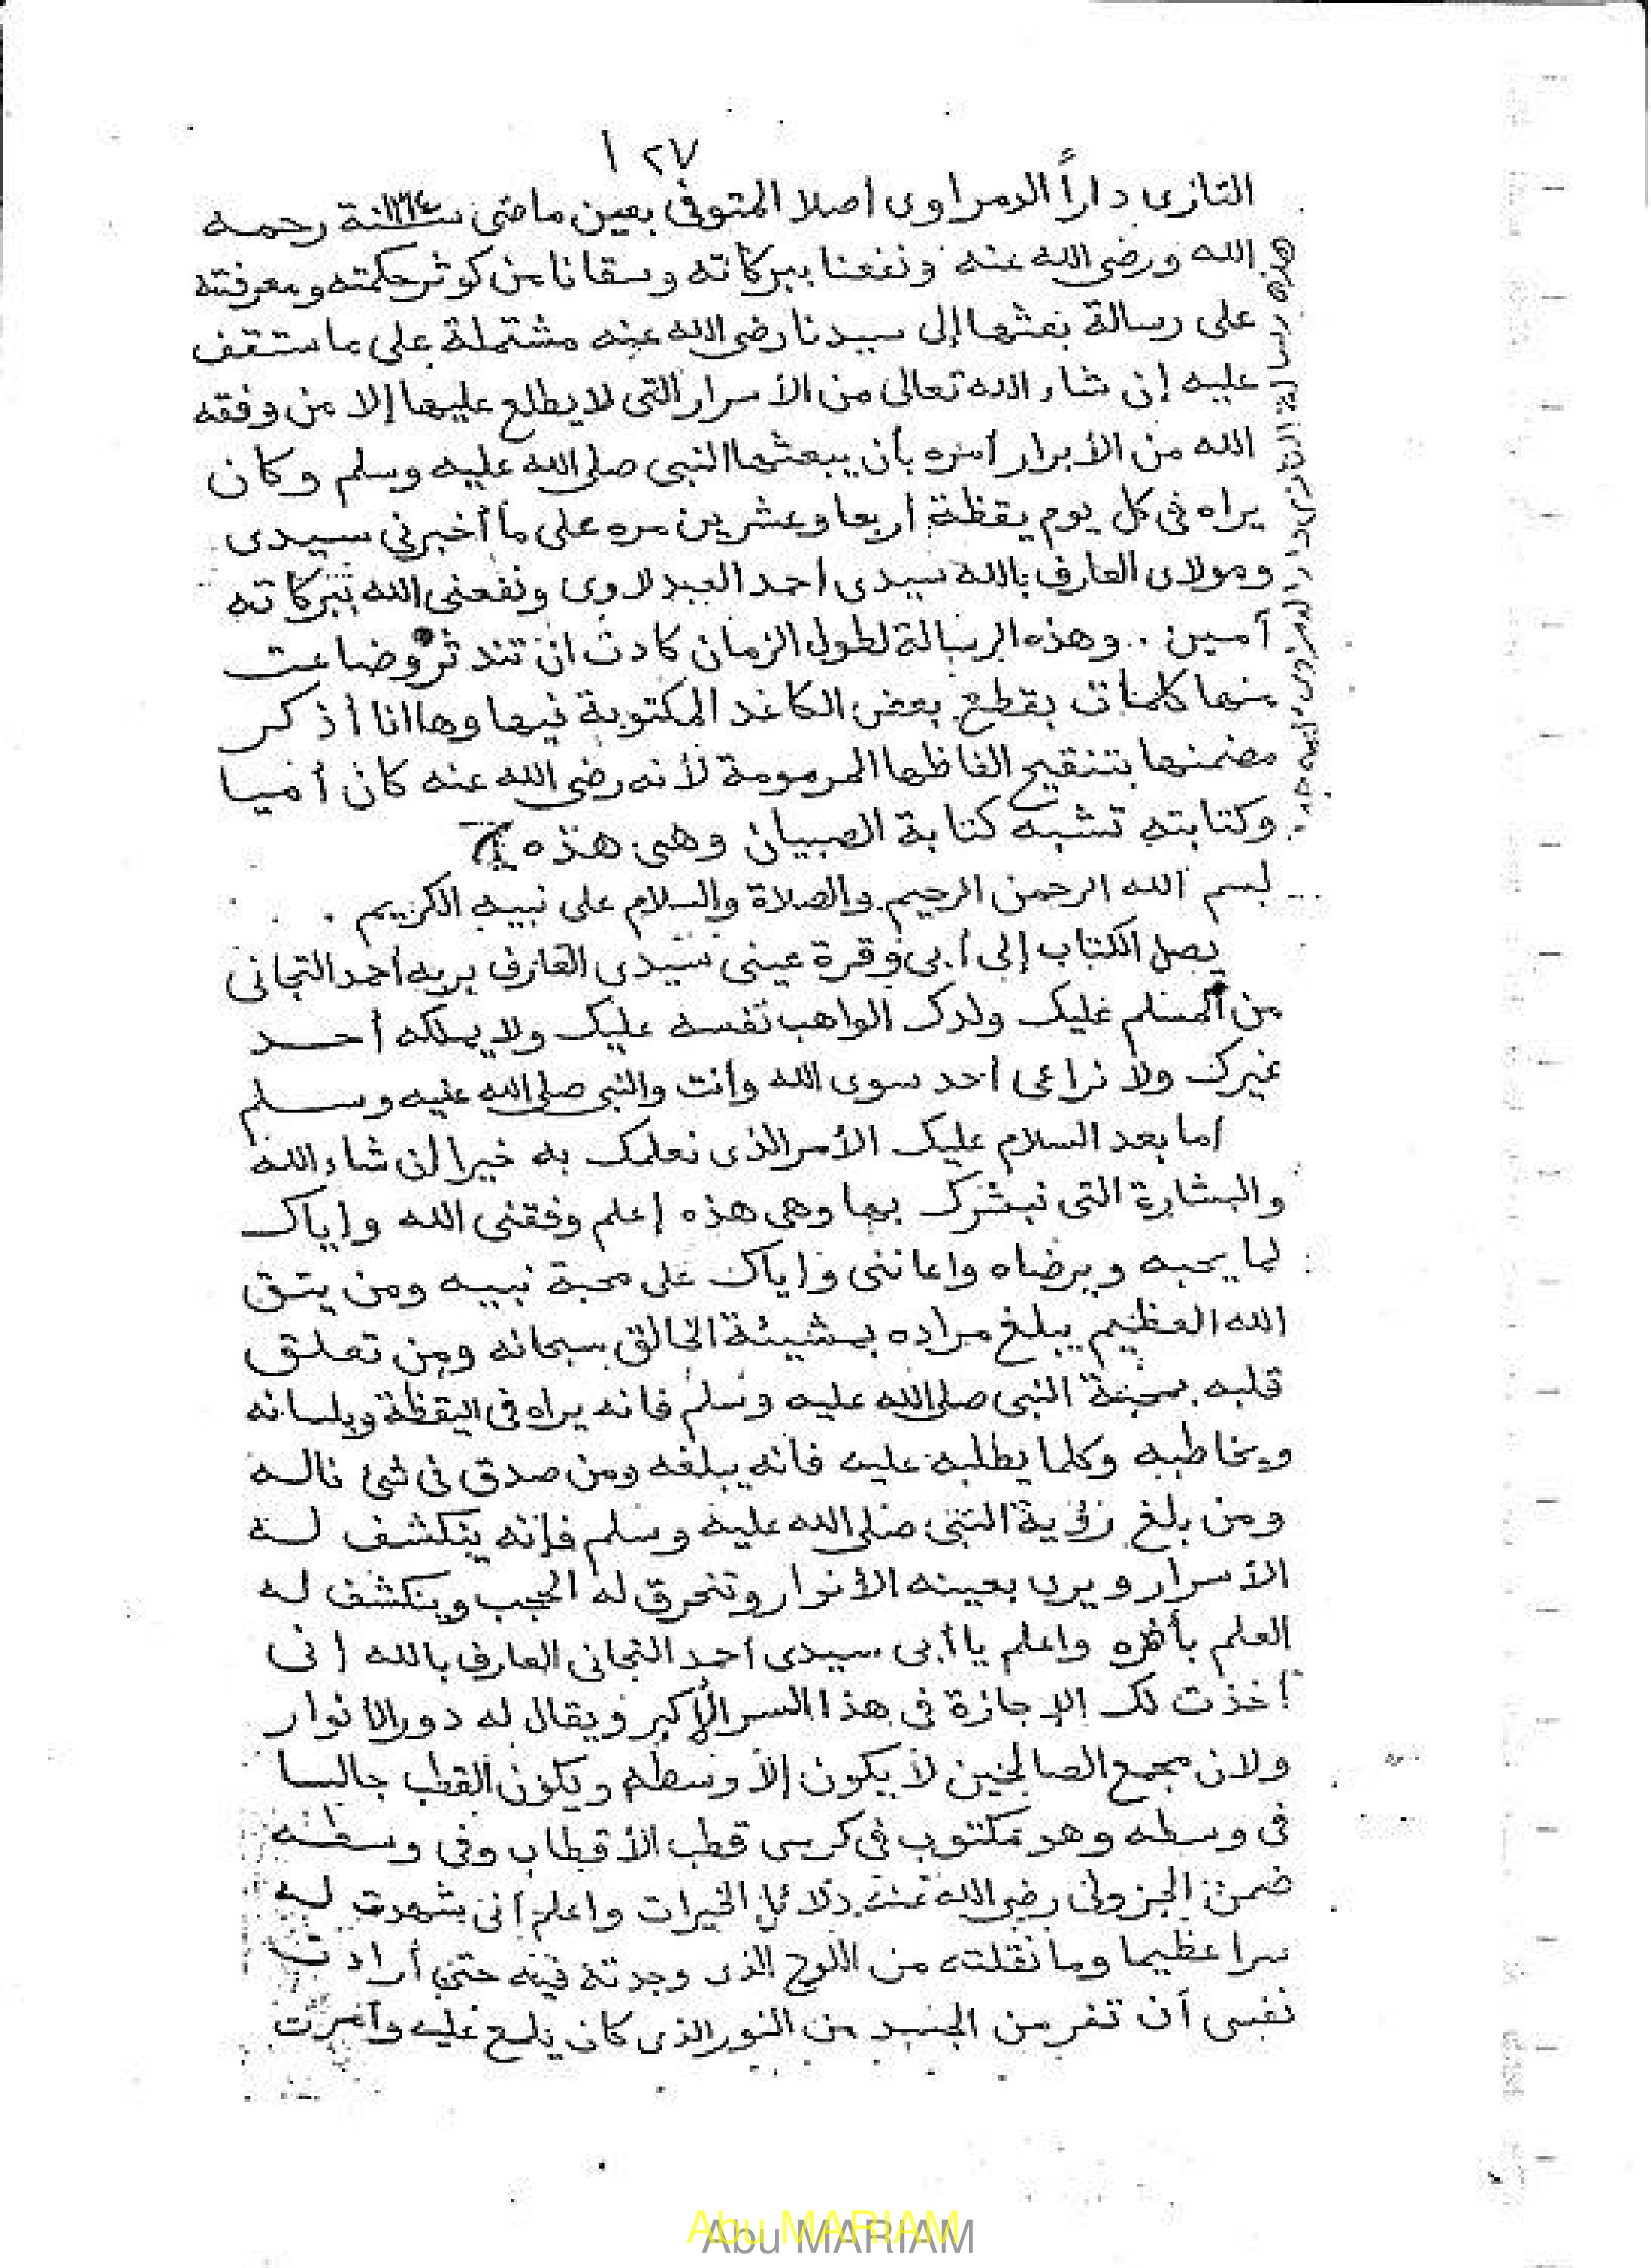 ١٢٧
التازى داراً الدمراوى اصلا المتوفى بعين ماضى سنة ١٢١٤ رحمه
الله ورضى الله عنه ونفعنا ببركاته وسقانا من كوثر حكمته ومعرفته
على رسالة بعثها إلى سيدنا رضى الله عنه مشتملة على ما ستقف
عليه إن شاء الله تعالى من الأسرار التى لا يطلع عليها إلا من وفقه
الله من الأبرار أمره بأن يبعثها النبى صلى الله عليه وسلم وكان
يراه فى كل يوم يقظة اربعا وعشرين مره على ما أخبرني سيدى
ومولاى العارف بالله سيدى احمد العبدلاوى ونفعنى الله ببركاته
آمين .. وهذه الرسالة لطول الزمان كادت ان تندثر وضاعت
منها كلمات بقطع بعض الكاغد المكتوبة فيها وها انا أذكر
مضمنها بتنقيح الفاظها المرمومة لأنه رضى الله عنه كان أميا
وكتابته تشبه كتابة الصبيان وهى هذه
بسم الله الرحمن الرحيم والصلاة والسلام على نبيه الكريم .
يصل الكتاب إلى أبى وقرة عينى سيدى العارف بربه أحمد التجانى
من المسلم عليك ولدك الواهب نفسه عليك ولا يملكه أحد
غيرك ولا نراعى احد سوى الله وأنت والنبى صلى الله عليه وسلم
أما بعد السلام عليك الأمر الذى نعلمك به خيرا إن شاء الله
والبشارة التى نبشرك بها وهى هذه إعلم وفقنى الله وإياك
لما يحبه ويرضاه واعاننى وإياك على محبة نبيه ومن يتق
الله العظيم يبلغ مراده بمشيئة الخالق سبحانه ومن تعلق
قلبه بمحبة النبى صلى الله عليه وسلم فانه يراه فى اليقظة وبلسانه
ويخاطبه وكلما يطلبه عليه فانه يبلغه ومن صدق فى شئ ناله
ومن بلغ رؤية النبى صلى الله عليه وسلم فإنه ينكشف له
الأسرار ويرى بعينه الأنوار وتنخرق له الحجب وينكشف له
العلم بأفره واعلم يا أبى سيدى احمد التجانى العارف بالله انى
أخذت لك الإجازة فى هذا السر الأكبر ويقال له دور الأنوار
ولان مجمع الصالحين لا يكون إلا وسطه ويكون القطب جالسا
فى وسطه وهو مكتوب فى كرسى قطب الأقطاب وفى وسطه
ضمن الجزولى رضى الله عنه دلائل الخيرات واعلم أنى شهدت له
سرا عظيما وما نقلته من اللوح الذى وجدته فيه حتى أرادت
نفسى أن تفر من الجسد من النور الذى كان يلمع عليه
هذه رسالة التازى دارا الدمراوى
Abu MARIAM
Abu MARIAM